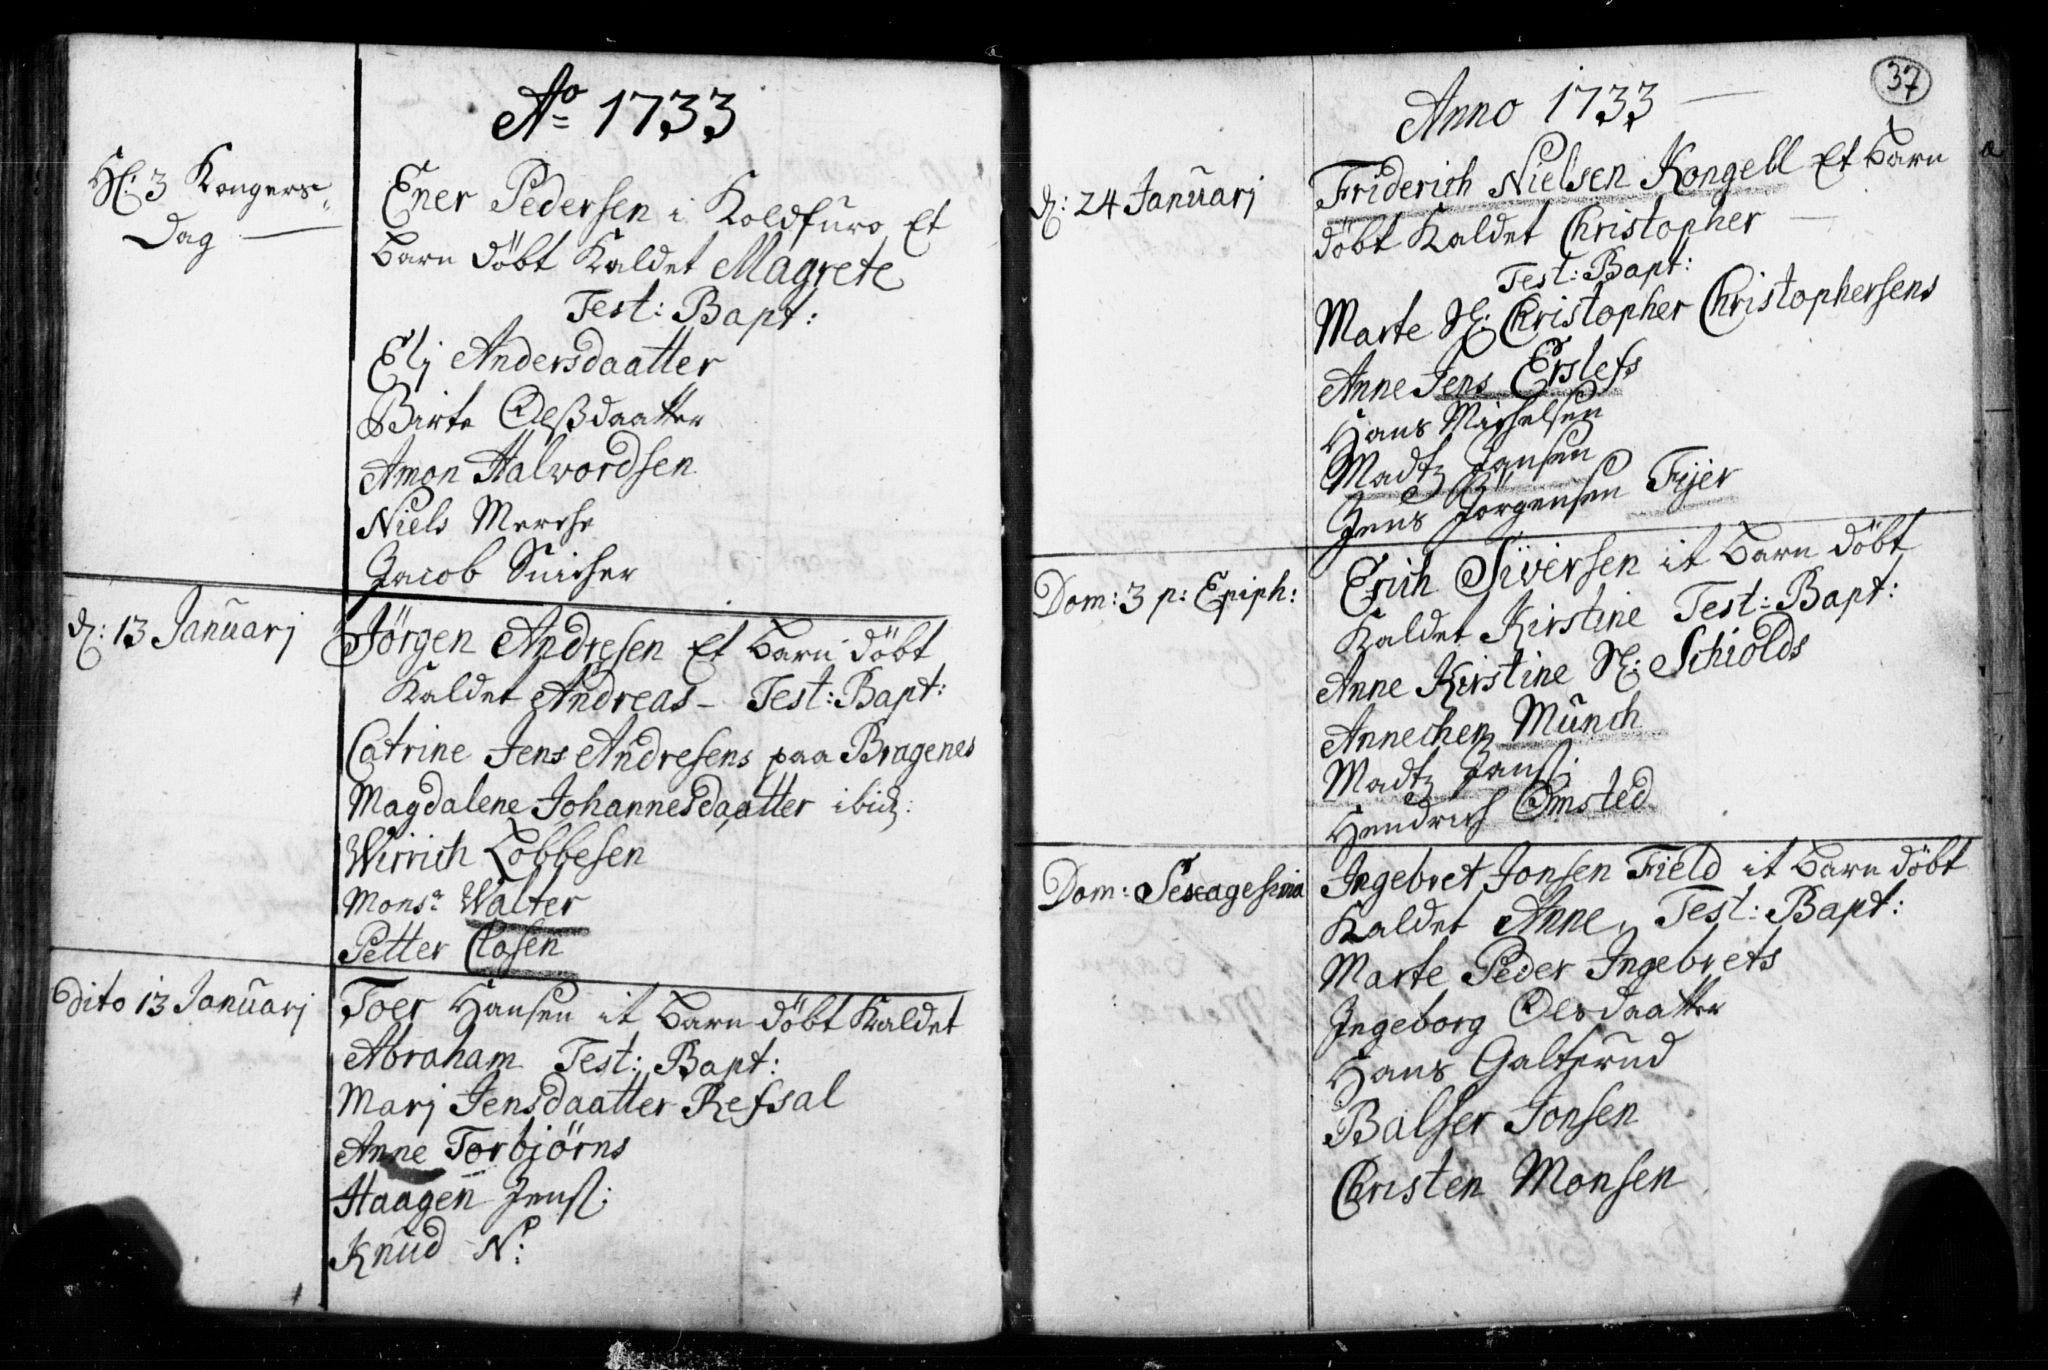 Ao 1733
Hl. 3 Kongers
Dag
Ener Pedersen i Koldfuro Et
barn döbt Kaldet Magrete
Test: Bapt:
Elj Andersdaatter
Birte Olsdaatter
Amon Halvordsen
Niels Merche
Jacob Snicher
d: 13 Januarj
Jörgen Andresen Et barn döbt
Kaldet Andreas - Test: Bapt:
Catrine Jens Andresens paa Bragenes
Magdalene Johannesdaatter ibid:
Wirrich Lobbesen
Monsr Walter
Petter Closen
Dito 13 Januarj
Toer Hansen it barn döbt Kaldet
Abraham Test: Bapt:
Marj Jensdaatter Refsal
Anne Torbjörns
Haagen Jens:
Knud N:
37
Anno 1733
d: 24 Januarj
Friderich Nielsen Kongell Et barn
döbt Kaldet Christopher
Test: Bapt:
Marte Sl: Christopher Christophersens
Anne Jens Erslefs
Hans Michelsen
Madtz Jansen
Jens Jörgensen Fyer
Dom: 3 p: Epiph:
Erich Siversen it barn döbt
Kaldet Kirstine Test: Bapt:
Anne Kirstine Sl: Schiolds
Annechen Munch
Madtz Jans:
Hendrich Omsted
Dom: Sexagesima
Ingebret Jonsen Field it barn döbt
Kaldet Anne, Test: Bapt:
Marte Peder Ingebrets
Ingeborg Olsdaatter
Hans Galterud
Balser Jonsen
Christen Monsen